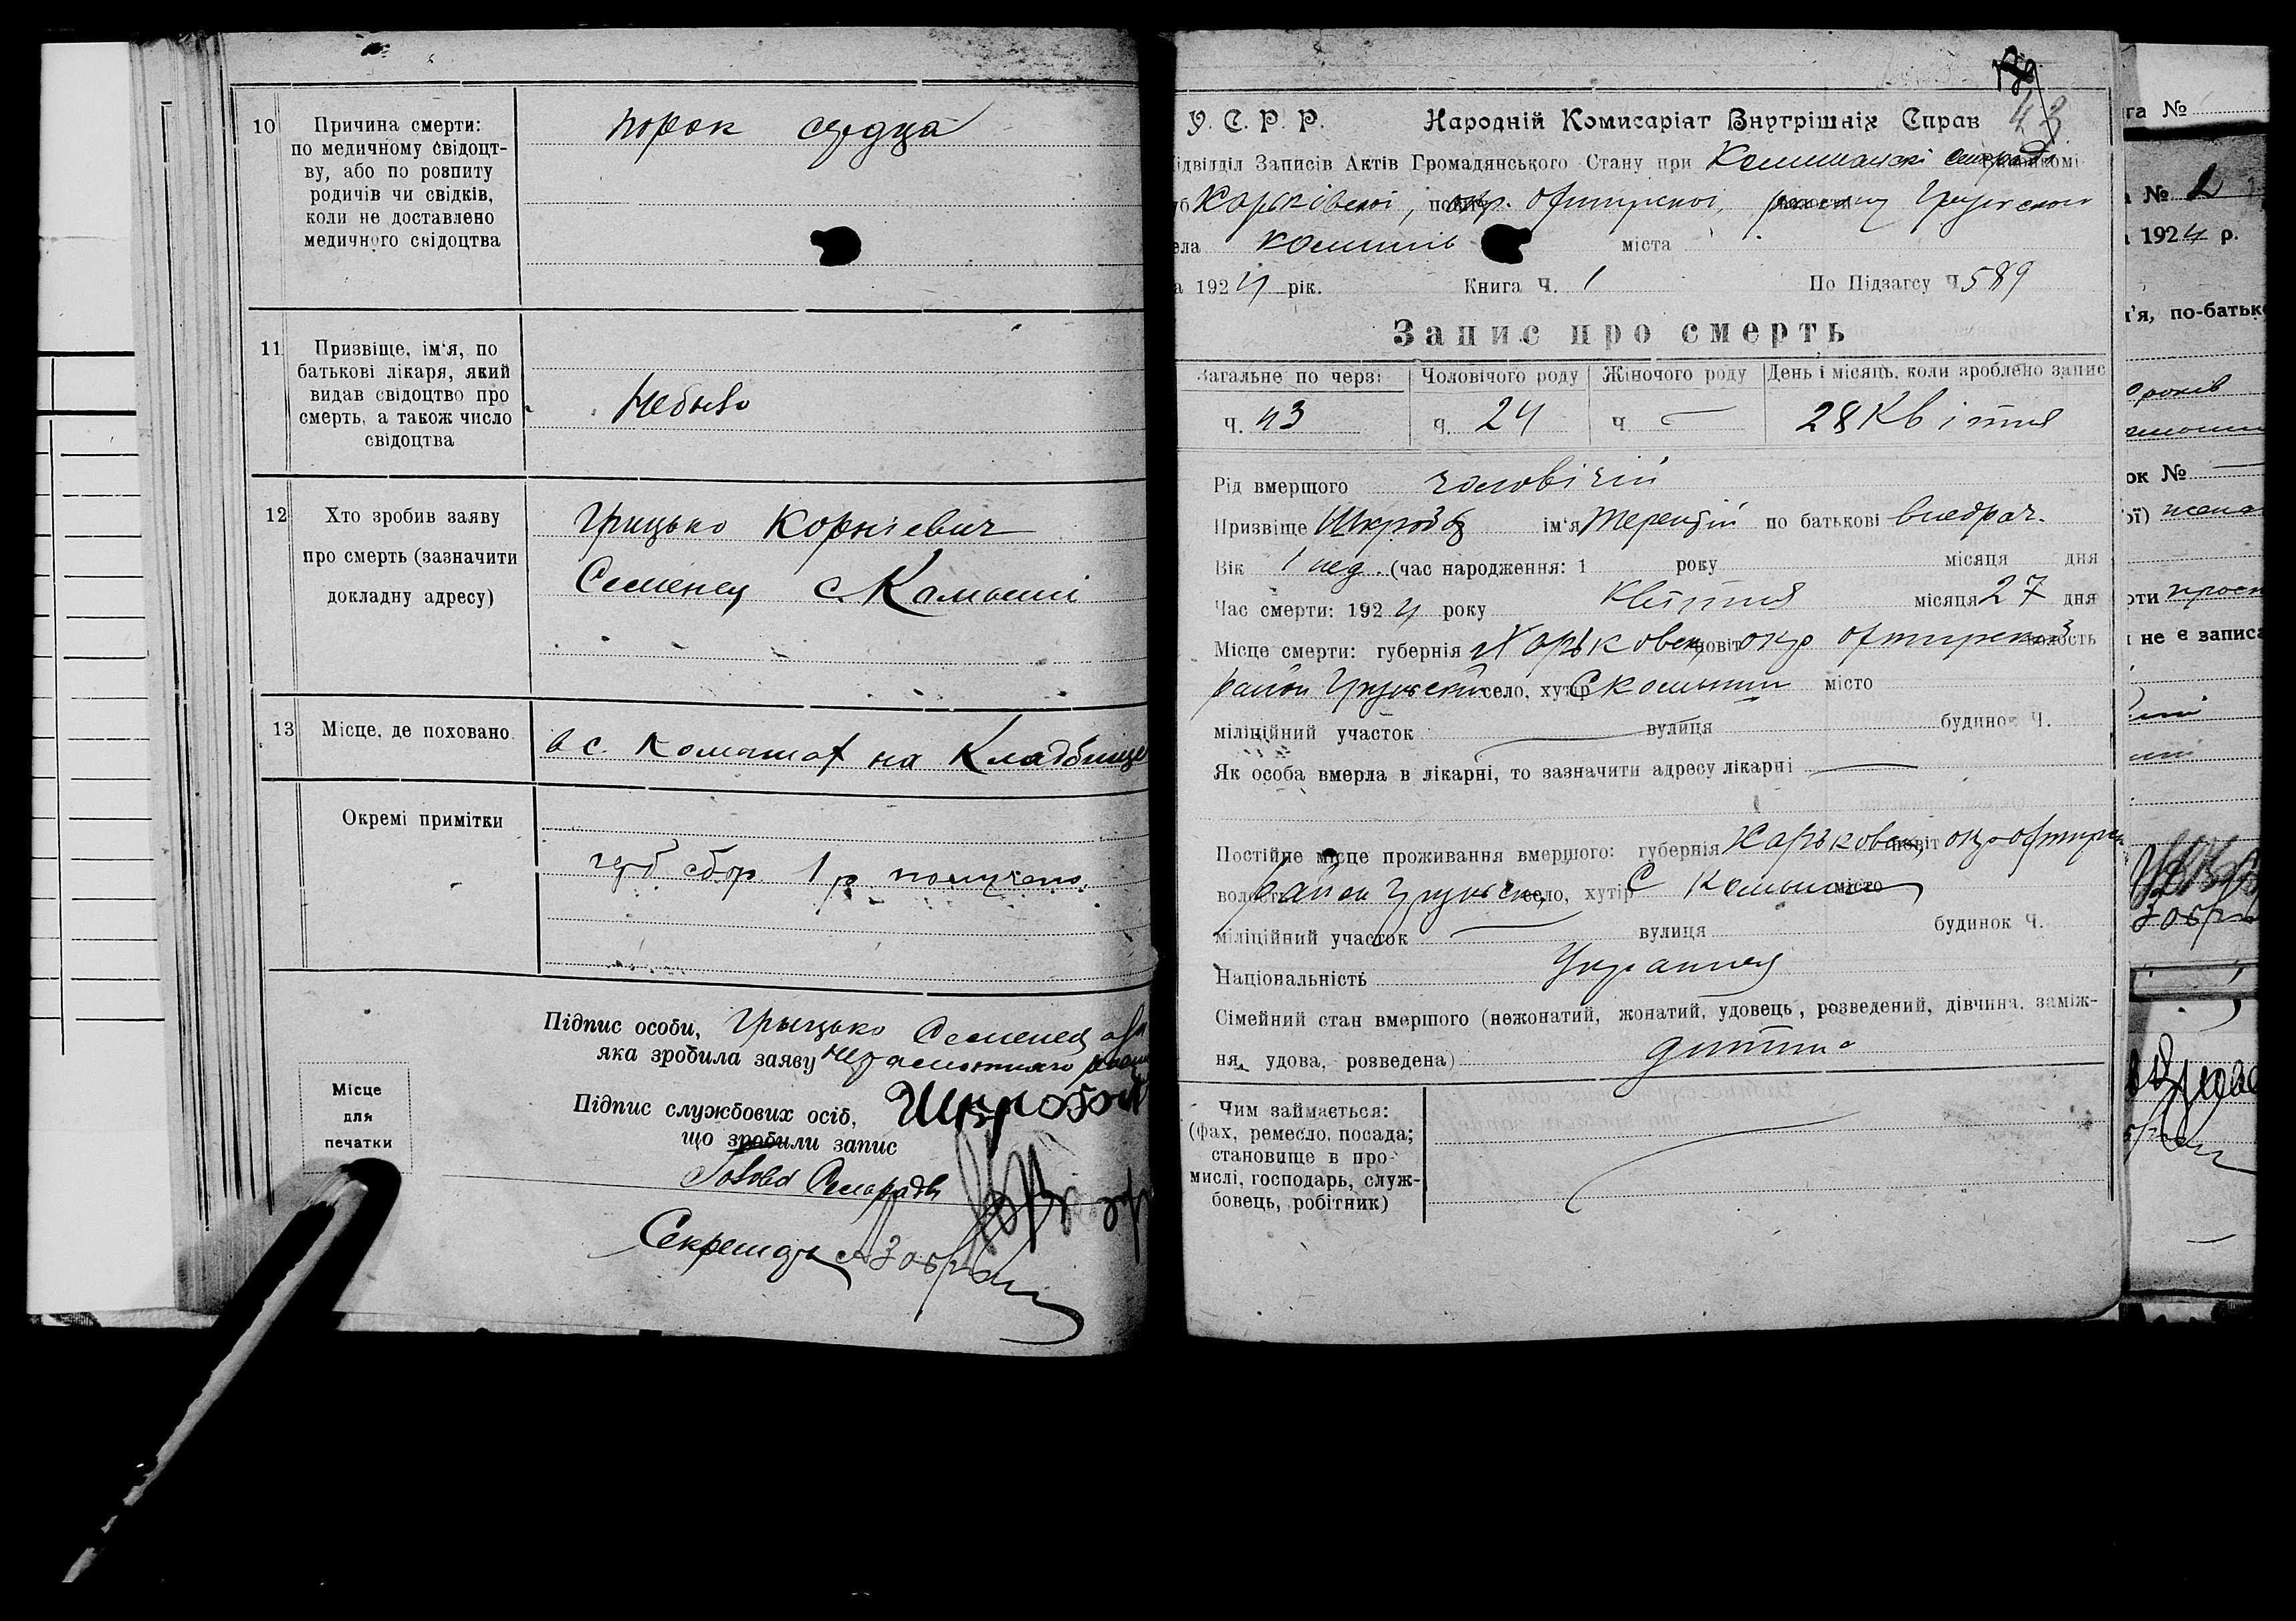 10 Причина смерти:
по медичному свідоцт-
ву, або по розпиту
родичів чи свідків,
коли не доставлено
медичного свідоцтва
порок сердца
11 Призвіще, ім'я, по
батькові лікаря, який
видав свідоцтво про
смерть, а також число
свідоцтва
Небыло
12 Хто зробив заяву
про смерть (зазначити
докладну адресу)
Грицько Корнієвич
Семенец с. Камыши
13 Місце, де поховано
в с. Комышах на Кладбище
Окремі примітки
сбор 1 р получено
Підпис особи, Грыцько Семенец
яка зробила заяву
Місце
для
печатки
Підпис службових осіб,
що зробили запис
Голова Сельради
Секретарь
43
У. С. Р. Р. Народній Комисаріят Внутрішніх Справ
ідвідділ Записів Актів Громадянського Стану при
Харківської, окр. району
ела Комишів міста
а 1924 рік. Книга Ч. 1 По Підзагсу Ч 589
Запис про смерть
Загальне по черзі Чоловічого роду Жіночого роду День і місяць, коли зроблено запис
Ч. 43 Ч. 24 Ч. — 28 Квітня
Рід вмершого чоловічій
Призвіще ім'я Терентій по батькові
Вік 1 нед. (час народження: 1 року місяця дня
Час смерти: 1924 року Квітня місяця 27 дня
Місце смерти: губернія Харьковск, повіт окр волость
район село, хутір С Комыши місто
міліційний участок — вулиця будинок Ч.
Як особа вмерла в лікарні, то зазначити адресу лікарні —
Постійне місце проживання вмершого: губернія Харьковск, повіт окр
волость район село, хутір С місто
міліційний участок — вулиця будинок Ч.
Національність Украинец
Сімейний стан вмершого (нежонатий, жонатий, удовець, розведений, дівчина, заміж-
ня, удова, розведена) дитина
Чим займається:
(фах, ремесло, посада;
становище в про-
мислі, господарь, служ-
бовець, робітник)
га №
№ 2
1924 р.
м'я, по-батько
років
ок №
ої) жена
рти
не є записа